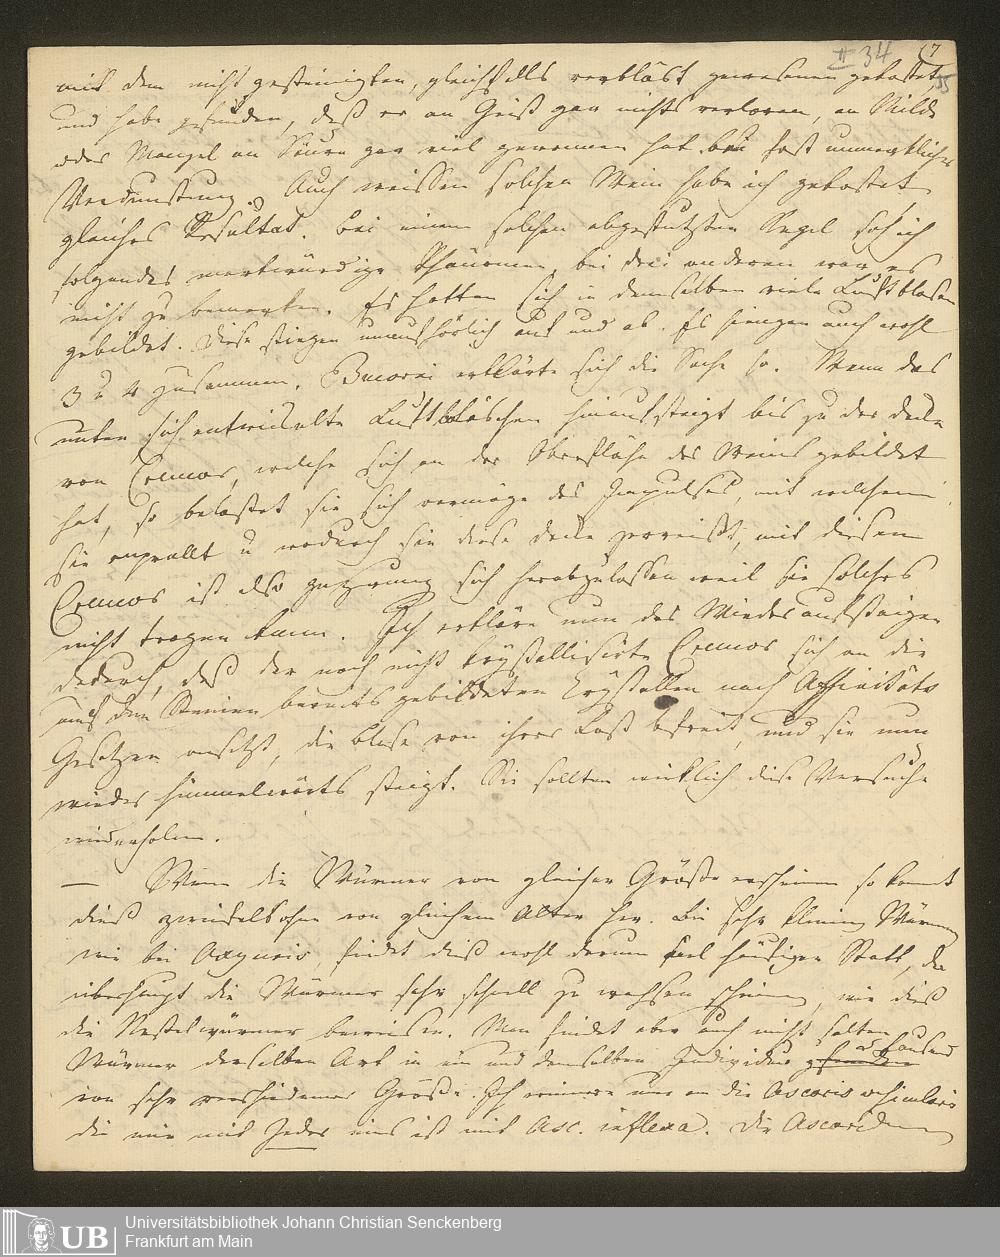 II 34 (7
35
mit dem nicht gereinigten, gleichfalls verbläst gewesenen gekostet,
und habe gefunden, daß er an Geist gar nichts verloren, an Milde
oder Mangel an Säure gar viel gewonnen hat bei fast unmerklicher
Verdunstung. Auch weissen solchen Wein habe ich gekostet
gleiches Resultat. Bei einem solchen abgestutzten Kegel sah ich
folgendes merkwürdige Phänomen, bei drei anderen war es
nicht zu bemerken. Es hatten sich in demselben viele Luftblasen
gebildet. Diese stiegen unaufhörlich auf und ab. Es hiengen auch wohl
3 u 4 zusammen. erklärte sich die Sache so. Wenn das
unten sich entwickelte Luftbläschen hinaufsteigt bis zu der Decke
von Cremor, welche sich an der Oberfläche des Weins gebildet
hat, so belastet sie sich vermöge des Impulses, mit welchem
sie anprallt u wodurch sie diese Decke zerreißt, mit diesem
Cremor ist also gezwung sich herabzulassen weil sie solches
nicht tragen kann. Ich erkläre nun das Wiederaufsteigen
dadurch, daß der noch nicht krystallisirte Cremor sich an die
auf den Steinen bereits gebildeten Krystallen nach Affinitäts
Gesetzen ansetzt, die Blase von ihrer Last befreit, und sie nun
wieder himmelwärts steigt. Sie sollten wirklich diese Versuche
wiederholen.
— Wenn die Würmer von gleicher Größe erscheinen so kommt
dieß zweifelsohne von gleichem Alter her. Bei sehr kleinen Würmern
wie bei Oxyuris, findet dieß wohl darum häufiger Statt, da
überhaupt die Würmer sehr schnell zu wachsen scheinen, wie dieß
die Nestelwürmer beweisen. Man findet aber auch nicht selten
Würmer derselben Art in ein und demselben Individuo
von sehr verschiedener Größe. Ich erinnere nur an die Ascaris vesicularis
die wie mit jedes eins ist mit Asc. inflexa. Die Ascariden
UB Universitätsbibliothek Johann Christian Senckenberg
Frankfurt am Main